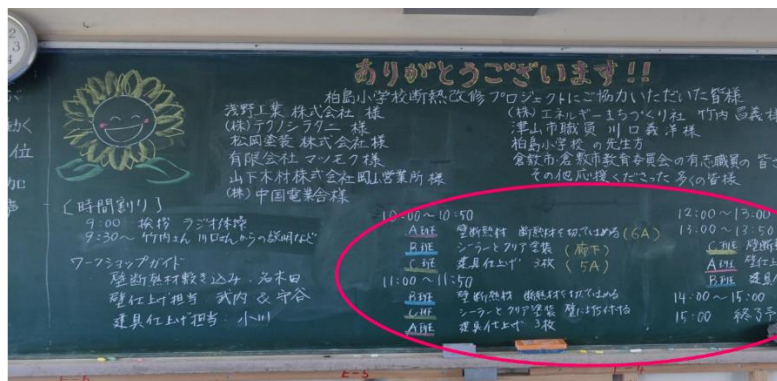 ありがとうございます!!
柏島小学校断熱改修プロジェクトにご協力いただいた皆様
浅野工業 株式会社 様
(株)テクノシラタニ 様
松岡塗装 株式会社 様
有限会社 マツモク 様
山下木材株式会社 岡山営業所 様
(株)中国電業舎様
(株)エネルギーまちづくり社 竹内 昌義 様
津山市職員 川口義洋様
柏島小学校 の先生方
倉敷市・倉敷市教育委員会の有志職員の皆
その他応援くださった 多くの皆様
[時間割り]
9:00 挨拶 ラジオ体操
9:30~ 竹内さん 川口さんからの説明など
ワークショップガイド
壁断熱材敷き込み:名木田
壁仕上げ担当 武内 & 守谷
建具仕上げ担当:小川
10:00~10:50
A班 壁断熱材 断熱材を切ってはめる (6A)
B班 シーラーとクリア塗装 (廊下)
C班 建具仕上げ 3枚 (5A)
11:00~11:50
B班 壁断熱材 断熱材を切ってはめる
C班 シーラーとクリア塗装
A班 建具仕上げ 3枚
12:00~13:00
13:00~13:50
C班 壁断
A班 壁仕上
B班 建具
14:00~15:00
15:00 終了予